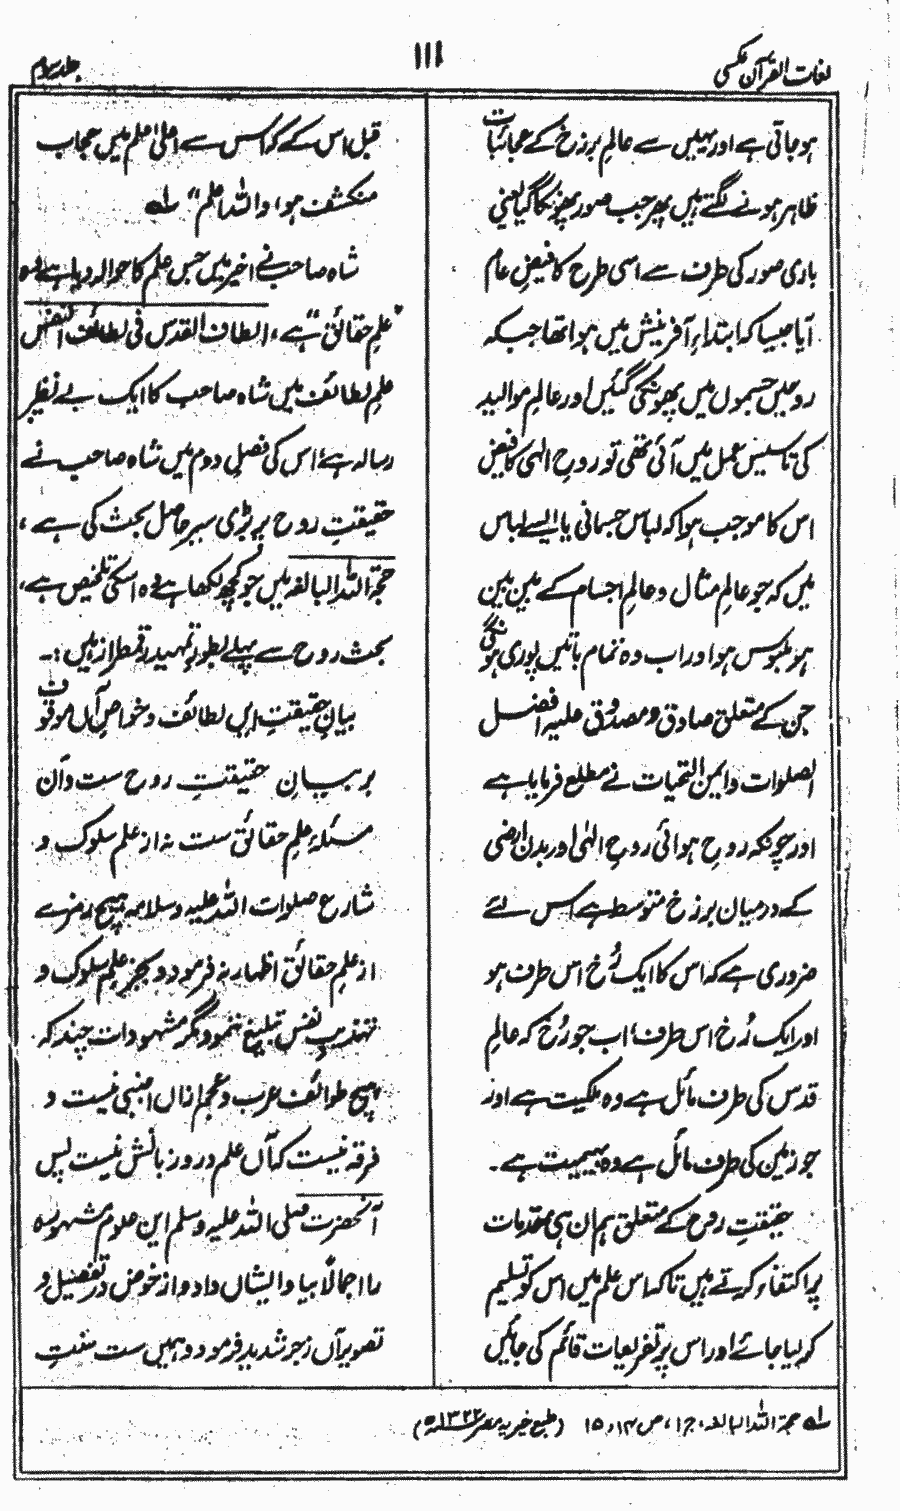 لغات القرآن عکسی
۱۱۱
جلد سوم
ہو جاتی ہے اور یہیں سے عالمِ برزخ کے عجائبات
ظاہر ہونے لگتے ہیں پھر جب صور پھونکا گیا یعنی
باری صور کی طرف سے اسی طرح کا فیضِ عام
آیا جیسا کہ ابتداءِ آفرینش میں ہوا تھا جبکہ
روحیں جسموں میں پھونکی گئیں اور عالمِ موالید
کی تاسیس عمل میں آئی تھی تو روحِ الٰہی کا فیض
اس کا موجب ہوا کہ لباس جسمانی یا ایسے لباس
میں کہ جو عالمِ مثال و عالمِ اجسام کے بین بین
ہو ملبوس ہوا اور اب وہ تمام باتیں پوری ہونگی
جن کے متعلق صادق و مصدوق علیہ افضل
الصلوات و ایمن التحیات نے مطلع فرمایا ہے
اور چونکہ روحِ ہوائی روحِ الٰہی اور بدن ارضی
کے درمیان برزخ متوسط ہے اس لئے
ضروری ہے کہ اس کا ایک رُخ اس طرف ہو
اور ایک رُخ اس طرف، اب جو رُخ کہ عالمِ
قدس کی طرف مائل ہے وہ ملکیت ہے اور
جو زمین کی طرف مائل ہے وہ بہیمیت ہے۔
حقیقتِ روح کے متعلق ہم ان ہی مقدمات
پر اکتفاء کرتے ہیں تاکہ اس علم میں اس کو تسلیم
کر لیا جائے اور اس پر تفریعات قائم کی جائیں
قبل اس کے کہ اس سے اعلیٰ علم میں حجاب
منکشف ہو، واللہ اعلم" لہ
شاہ صاحب نے اخیر میں جس علم کا حوالہ دیا ہے وہ
"علمِ حقائق" ہے، الطاف القدس فی لطائف النفس
علمِ لطائف میں شاہ صاحب کا ایک بے نظیر
رسالہ ہے اس کی فصل دوم میں شاہ صاحب نے
حقیقتِ روح پر بڑی سیر حاصل بحث کی ہے،
حجۃ اللہ البالغہ میں جو کچھ لکھا ہے وہ اسکی تلخیص ہے،
بحث روح سے پہلے بطور تمہید رقمطراز ہیں :۔
بیانِ حقیقتِ ایں لطائف و خواصِ آں موقوف
بر بیانِ حقیقتِ روح ست و آن
مسئلہ علمِ حقائق ست نہ از علم سلوک و
شارع صلوات اللہ علیہ و سلامہ ہیچ رمزے
از علمِ حقائق اظہار نہ فرمود و بجز علمِ سلوک و
تہذیبِ نفس تبلیغ ننمود مگر مشہودات چند کہ
ہیچ طوائف عرب و عجم ازاں اجنبی نیست و
فرقہ نیست کہ آں علم در روز بانش نیست پس
آنحضرت صلی اللہ علیہ وسلم ایں علوم مشہورہ
را اجمالاً بیا و ایشاں داد و از خوض در تفصیل و
تصویر آں زجر شدید فرمود و ہمیں ست سنتِ
لہ حجۃ اللہ البالغہ، ج۱، ص ۱۴ و ۱۵ (طبع خیریہ مصر ۱۳۲۲ھ)